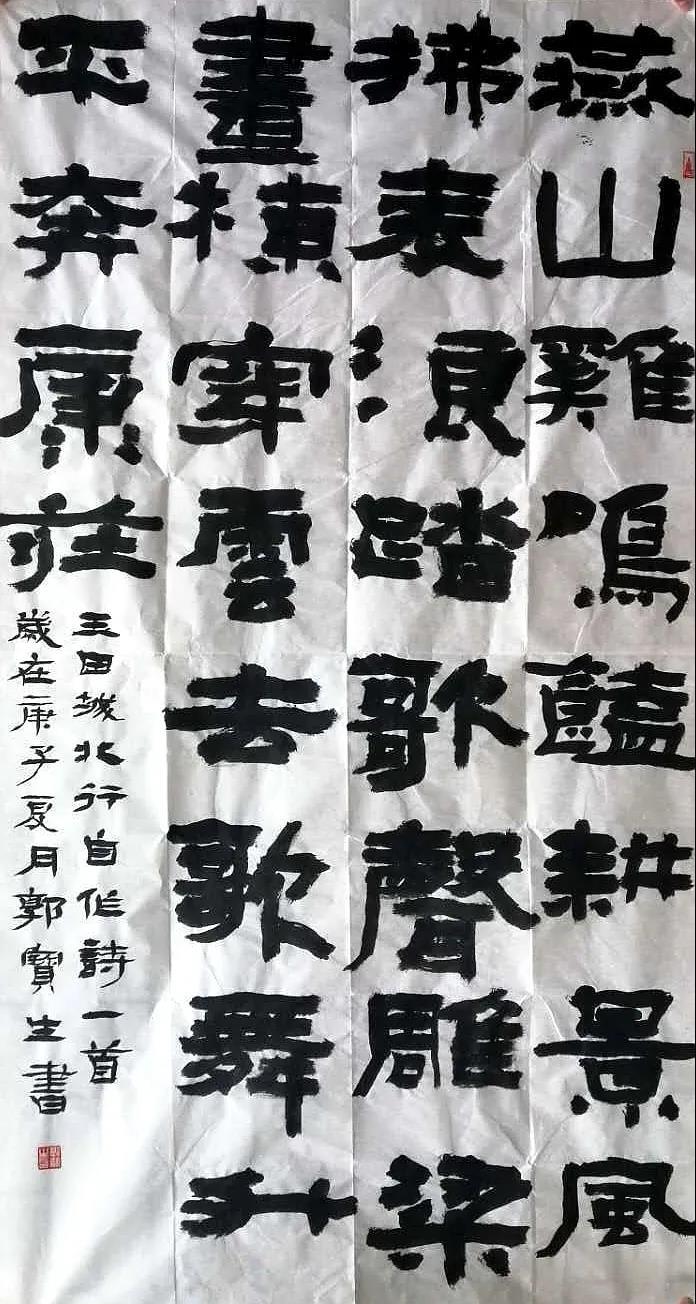 燕山雞鳴饁耕景風
拂麦浪踏歌聲雕梁
畫棟穿雲去歌舞升
平奔康莊
玉田城北行自作詩一首
歲在庚子夏月郭寶生書